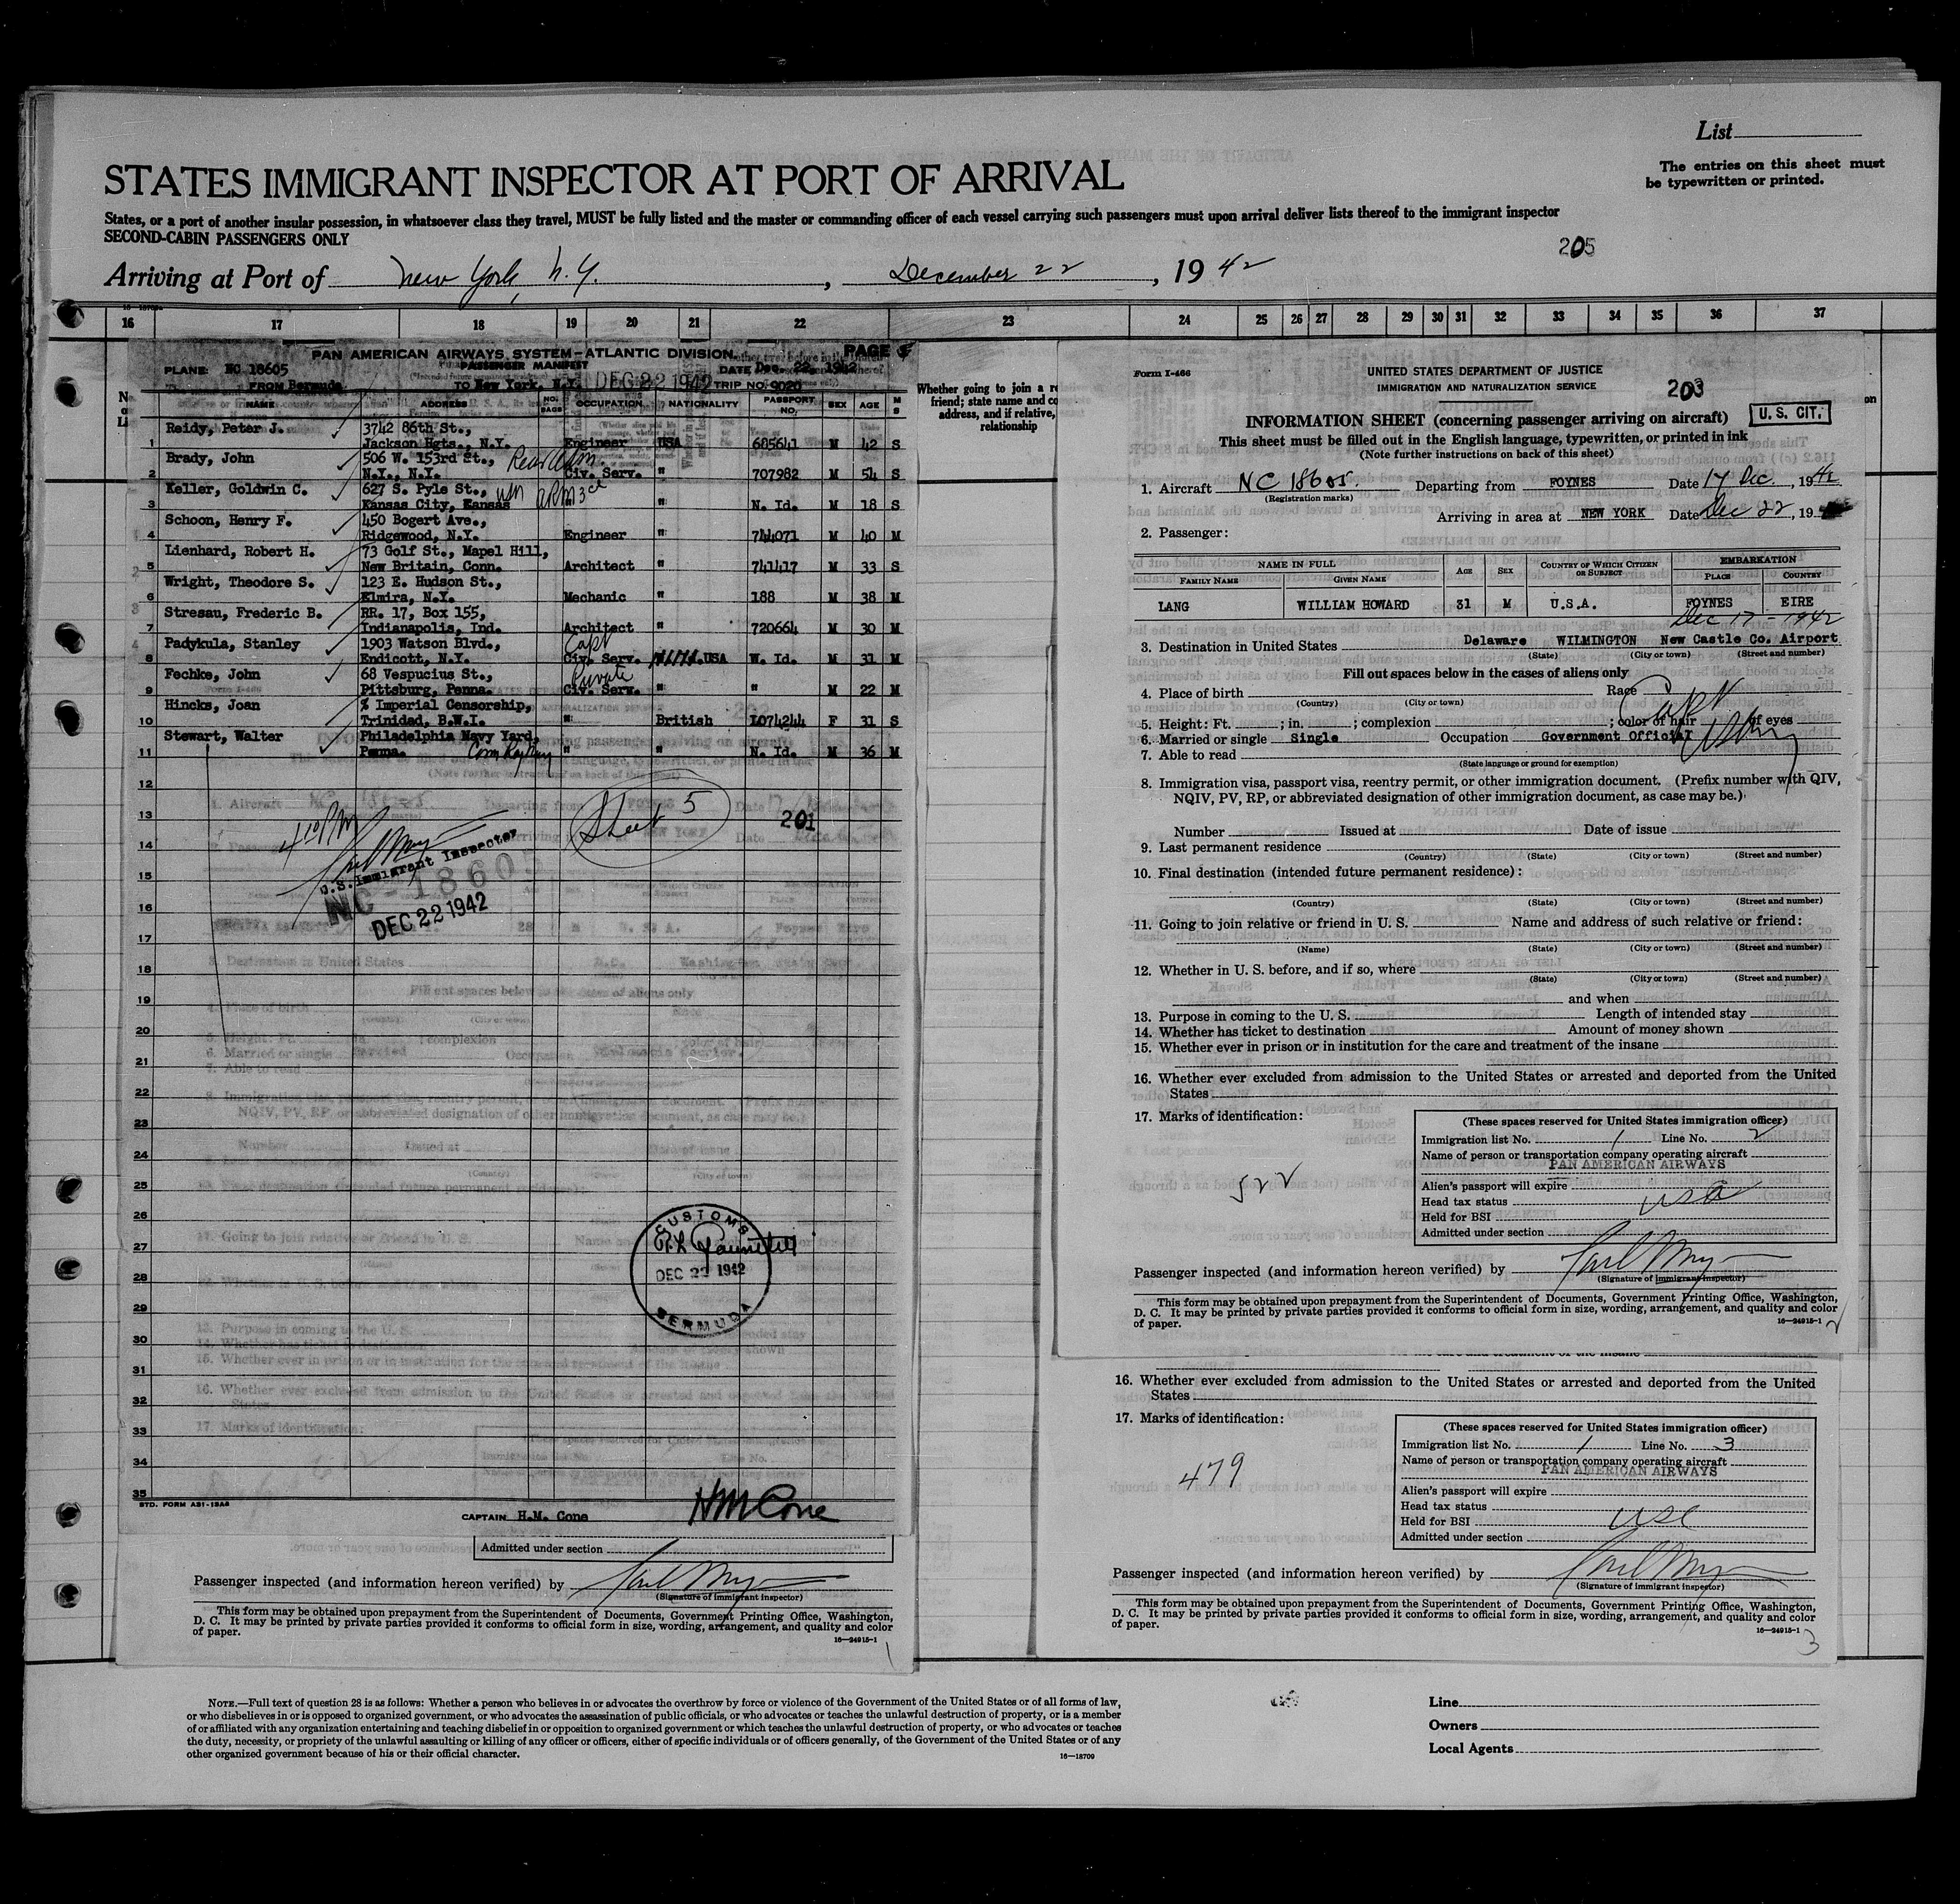 List
The entries on this sheet must
be typewritten or printed.
STATES IMMIGRANT INSPECTOR AT PORT OF ARRIVAL
States, or a port of another insular possession, in whatsoever class they travel, MUST be fully listed and the master or commanding officer of each vessel carrying such passengers must upon arrival deliver lists thereof to the immigrant inspector
SECOND-CABIN PASSENGERS ONLY
205
Arriving at Port of New York, N.Y., December 22, 1942
16 17 18 19 20 21 22 23 24 25 26 27 28 29 30 31 32 33 34 35 36 37
PAN AMERICAN AIRWAYS SYSTEM-ATLANTIC DIVISION PAGE
PLANE: NC 18605 PASSENGER MANIFEST DATE Dec. 22, 1942
FROM Bermuda TO New York, N.Y. DEC 22 1942 TRIP NO. 9020
NAME ADDRESS NO. BAGS OCCUPATION NATIONALITY PASSPORT NO. SEX AGE M S
Reidy, Peter J. 3742 86th St.,
1 Jackson Hgts., N.Y. Engineer USA 685641 M 42 S
Brady, John 506 W. 153rd St.,
2 N.Y., N.Y. Civ. Serv. " 707982 M 54 S
Keller, Goldwin C. 627 S. Pyle St., USN ARM 3cl
3 Kansas City, Kansas " N. Id. M 18 S
Schoon, Henry F. 450 Bogert Ave.,
4 Ridgewood, N.Y. Engineer " 744071 M 40 M
Lienhard, Robert H. 73 Golf St., Mapel Hill,
5 New Britain, Conn. Architect " 741417 M 33 S
Wright, Theodore S. 123 E. Hudson St.,
6 Elmira, N.Y. Mechanic " 188 M 38 M
Stresau, Frederic B. RR. 17, Box 155,
7 Indianapolis, Ind. Architect " 720664 M 30 M
Padykula, Stanley 1903 Watson Blvd., Capt
8 Endicott, N.Y. Civ. Serv. USA W. Id. M 31 M
Fechke, John 68 Vespucius St., Private
9 Pittsburg, Penna. Civ. Serv. " " M 22 M
Hincks, Joan % Imperial Censorship,
10 Trinidad, B.W.I. " British L074244 F 31 S
Stewart, Walter Philadelphia Navy Yard,
11 Penna. " " N. Id. M 36 M
12
13
14
15
16
17
18
19
20
21
22
23
24
25
26
27
28
29
30
31
32
33
34
35
Sheet 5
201
4 10 PM
U.S. Immigrant Inspector
NC-18605
DEC 22 1942
CUSTOMS
DEC 22 1942
BERMUDA
STD. FORM AS1-15AS
CAPTAIN H.M. Cone HM Cone
Admitted under section
Passenger inspected (and information hereon verified) by
(Signature of immigrant inspector)
This form may be obtained upon prepayment from the Superintendent of Documents, Government Printing Office, Washington,
D. C. It may be printed by private parties provided it conforms to official form in size, wording, arrangement, and quality and color
of paper.
16—24915-1
1
Whether going to join a re
friend; state name and co
address, and if relative,
relationship
Form I-466
UNITED STATES DEPARTMENT OF JUSTICE
IMMIGRATION AND NATURALIZATION SERVICE
203
INFORMATION SHEET (concerning passenger arriving on aircraft)
U. S. CIT.
This sheet must be filled out in the English language, typewritten, or printed in ink
(Note further instructions on back of this sheet)
1. Aircraft NC 18605. Departing from FOYNES Date 17 Dec., 1942
(Registration marks)
Arriving in area at NEW YORK Date Dec 22, 19
2. Passenger:
NAME IN FULL AGE SEX COUNTRY OF WHICH CITIZEN OR SUBJECT EMBARKATION
FAMILY NAME GIVEN NAME PLACE COUNTRY
LANG WILLIAM HOWARD 31 M U.S.A. FOYNES EIRE
Dec 17-1942
3. Destination in United States Delaware WILMINGTON New Castle Co. Airport
(State) (City or town) (Street and number)
Fill out spaces below in the cases of aliens only
4. Place of birth Race
(Country) (City or town)
5. Height: Ft. ; in. ; complexion ; color of hair of eyes
6. Married or single Single Occupation Government Official
Capt
7. Able to read
(State language or ground for exemption)
8. Immigration visa, passport visa, reentry permit, or other immigration document. (Prefix number with QIV,
NQIV, PV, RP, or abbreviated designation of other immigration document, as case may be.)
Number Issued at Date of issue
9. Last permanent residence
(Country) (State) (City or town) (Street and number)
10. Final destination (intended future permanent residence):
(Country) (State) (City or town) (Street and number)
11. Going to join relative or friend in U. S. Name and address of such relative or friend:
(Name) (State) (City or town) (Street and number)
12. Whether in U. S. before, and if so, where
(State) (City or town) (Street and number)
and when
13. Purpose in coming to the U. S. Length of intended stay
14. Whether has ticket to destination Amount of money shown
15. Whether ever in prison or in institution for the care and treatment of the insane
16. Whether ever excluded from admission to the United States or arrested and deported from the United
States
17. Marks of identification:
522
(These spaces reserved for United States immigration officer)
Immigration list No. 1 Line No. 2
Name of person or transportation company operating aircraft
PAN AMERICAN AIRWAYS
Alien's passport will expire
Head tax status USA
Held for BSI
Admitted under section
Passenger inspected (and information hereon verified) by
(Signature of immigrant inspector)
This form may be obtained upon prepayment from the Superintendent of Documents, Government Printing Office, Washington,
D. C. It may be printed by private parties provided it conforms to official form in size, wording, arrangement, and quality and color
of paper.
16—24915-1
2
16. Whether ever excluded from admission to the United States or arrested and deported from the United
States
17. Marks of identification:
479
(These spaces reserved for United States immigration officer)
Immigration list No. 1 Line No. 3
Name of person or transportation company operating aircraft
PAN AMERICAN AIRWAYS
Alien's passport will expire
Head tax status
Held for BSI USC
Admitted under section
Passenger inspected (and information hereon verified) by
(Signature of immigrant inspector)
This form may be obtained upon prepayment from the Superintendent of Documents, Government Printing Office, Washington,
D. C. It may be printed by private parties provided it conforms to official form in size, wording, arrangement, and quality and color
of paper.
16—24915-1
3
NOTE.—Full text of question 28 is as follows: Whether a person who believes in or advocates the overthrow by force or violence of the Government of the United States or of all forms of law,
or who disbelieves in or is opposed to organized government, or who advocates the assassination of public officials, or who advocates or teaches the unlawful destruction of property, or is a member
of or affiliated with any organization entertaining and teaching disbelief in or opposition to organized government or which teaches the unlawful destruction of property, or who advocates or teaches
the duty, necessity, or propriety of the unlawful assaulting or killing of any officer or officers, either of specific individuals or of officers generally, of the Government of the United States or of any
other organized government because of his or their official character.
16—18709
Line
Owners
Local Agents